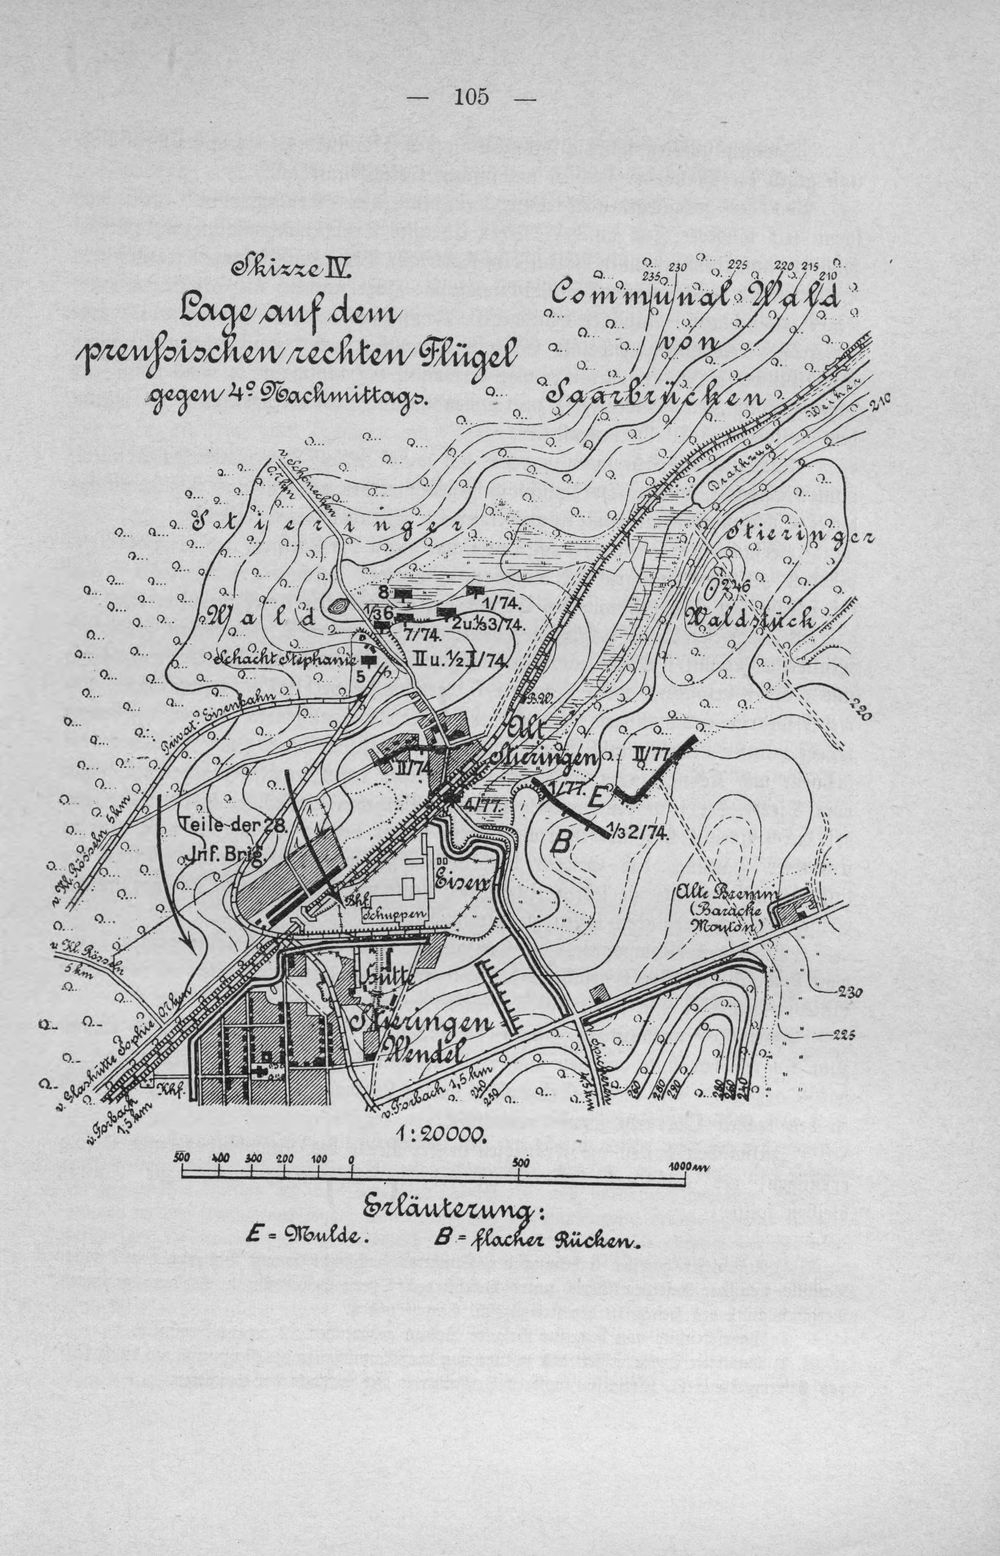 — 105 —
Skizze IV.
Lage auf dem
preußischen rechten Flügel
gegen 4º Nachmittags.
235 230 225 220 215 210
Communal Wald
von
Saarbrücken
Drathzug-Weiher
210
v. Schöneck
Stieringer
Wald
Stieringer
246
Waldstück
220
8
1/74.
1/36
2 u. 1/3 3/74.
7/74.
II u. 1/2 I/74.
Schacht Stephanie
5
Privat-Eisenbahn
v. Kl. Rosseln 5 km
B.W.
Alt
Stieringen
II/74
4/77.
1/77.
E
III/77
B
1/3 2/74.
Teile der 28.
Inf. Brig.
Eisen
Bhf.
Schuppen
Alte Bremm
(Baracke
Mouton)
v. Kl. Rosseln
5 km
Hütte
Stieringen
Wendel
230
225
v. Glashütte Sophie 0,7 km
Khf.
v. Forbach
1,5 km
v. Forbach 1,5 km
v. Spicheren
4,5 km
240
250
1:20000.
500 400 300 200 100 0 500 1000 m
Erläuterung:
E = Mulde. B = flacher Rücken.